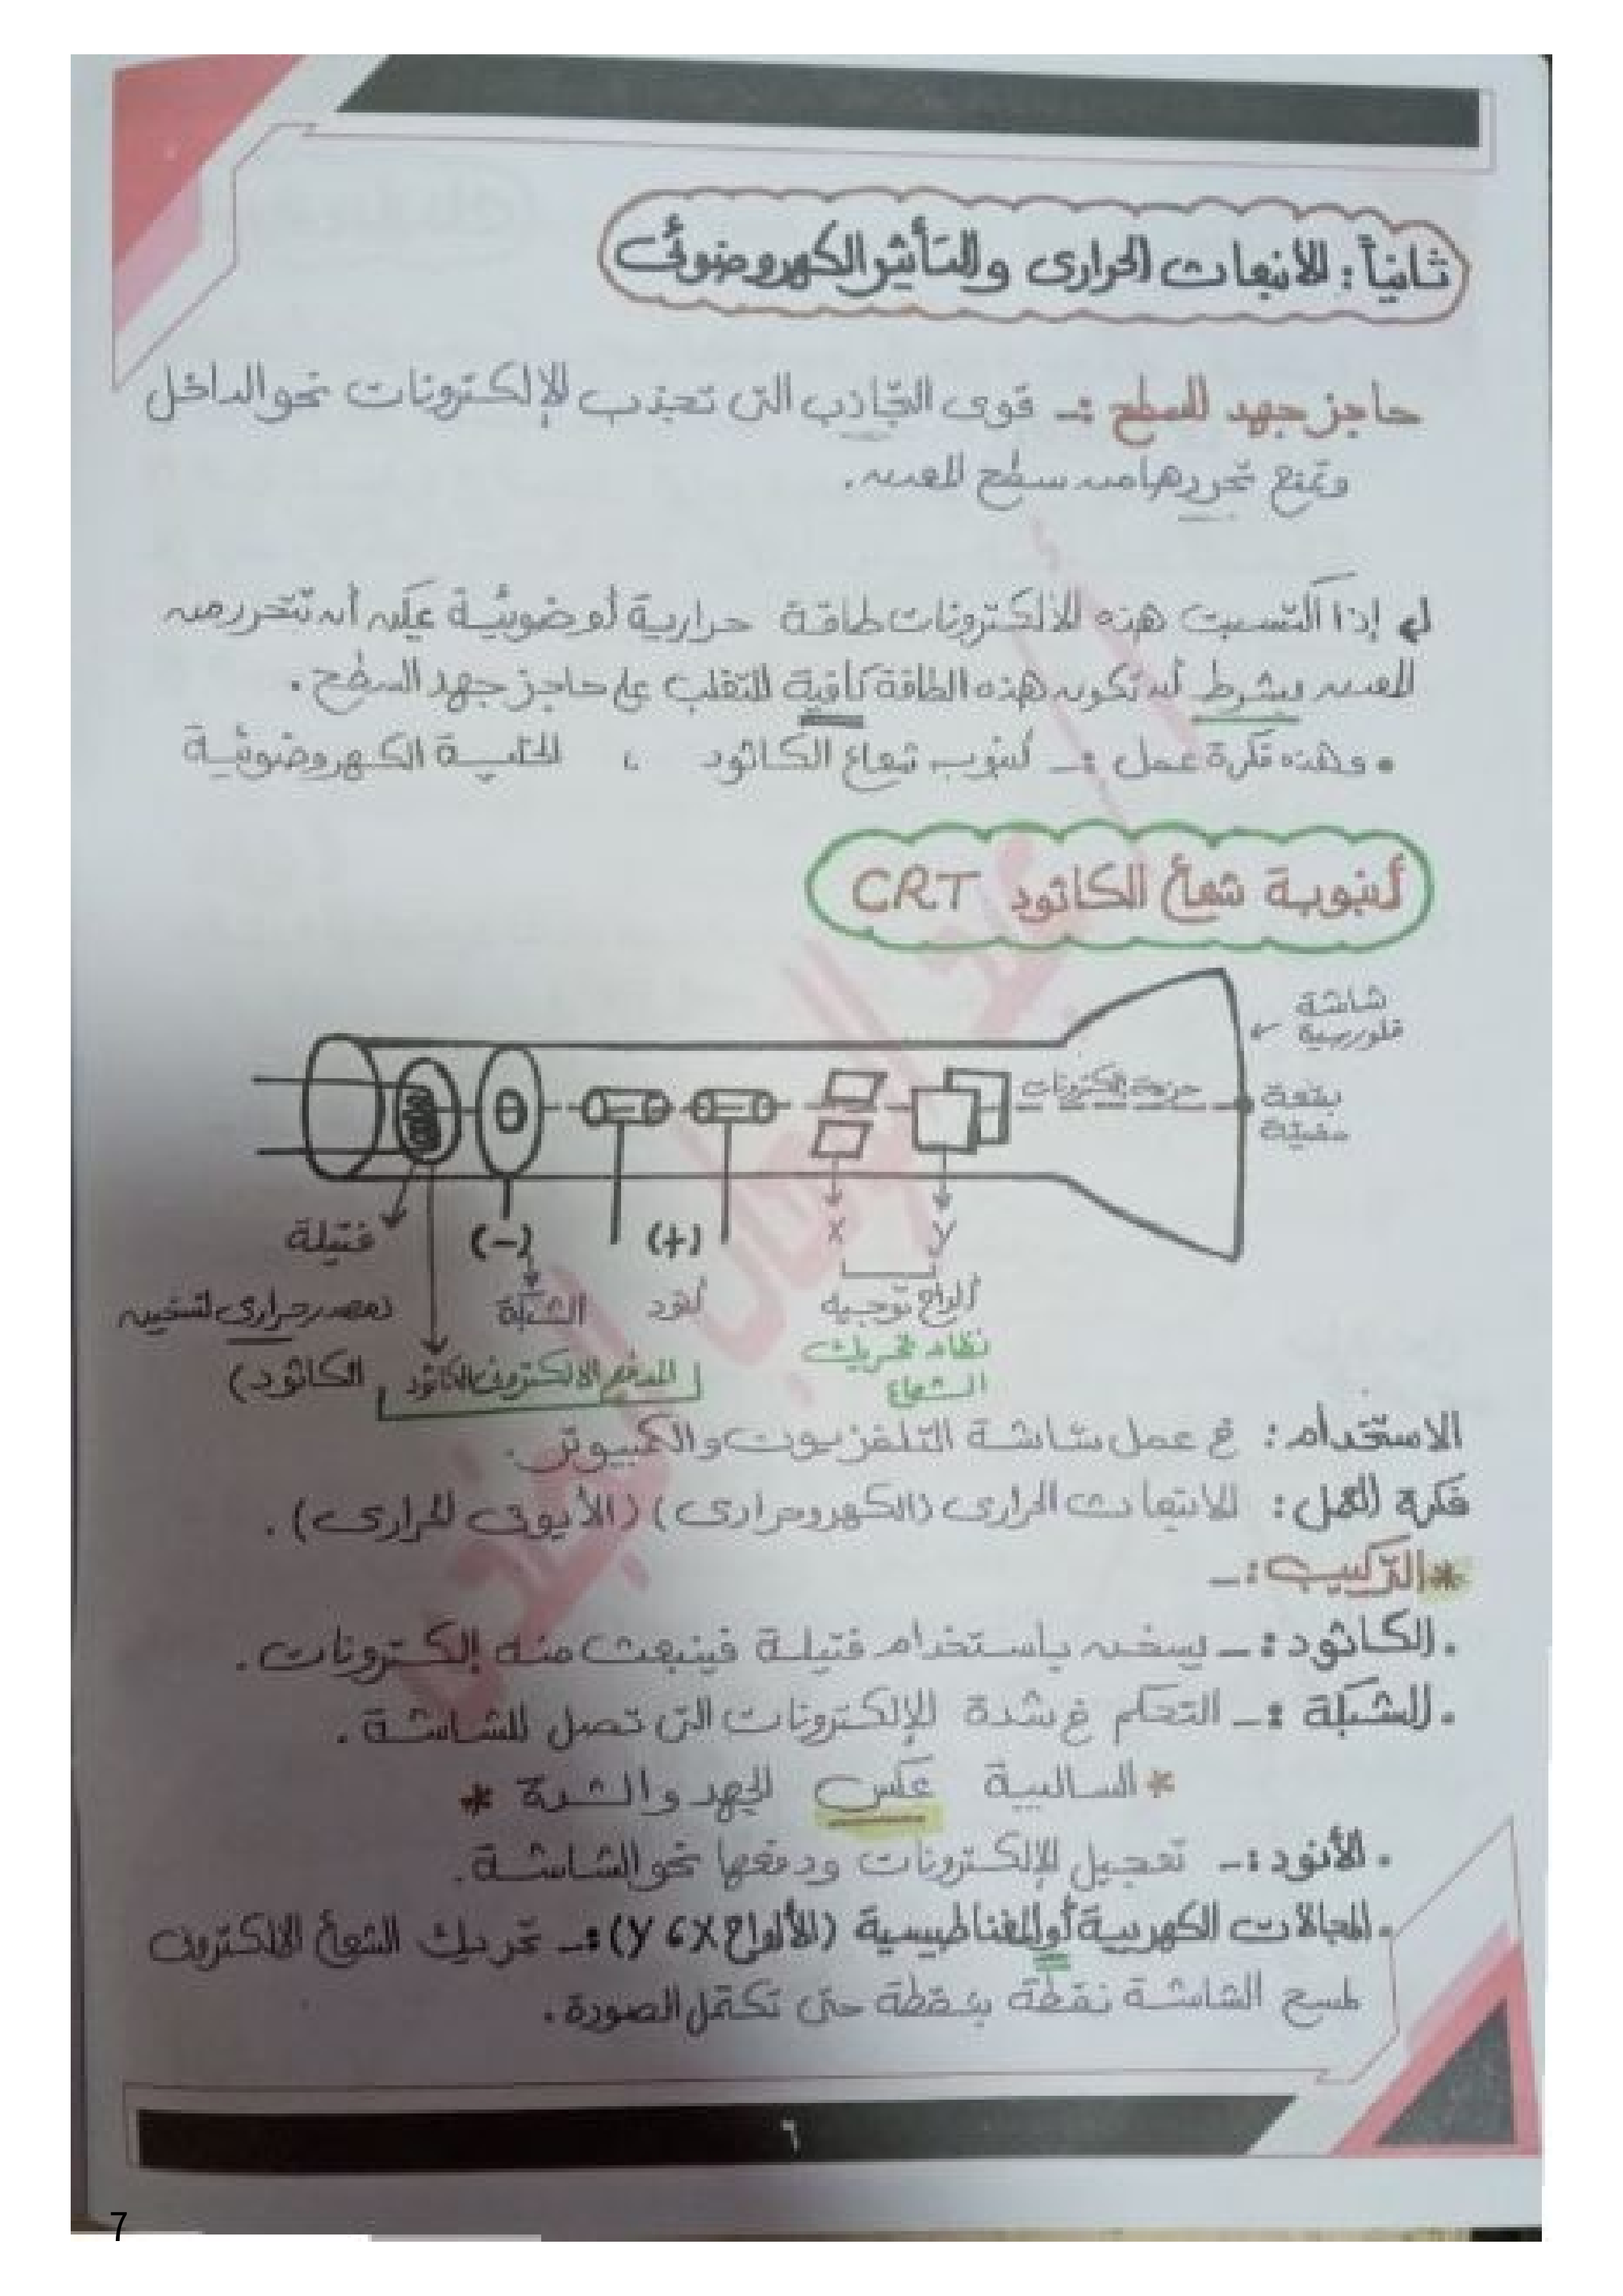 ثانياً : الانبعاث الحرارى والتأثير الكهروضوئى
حاجز جهد السطح :- قوى التجاذب التى تجذب الإلكترونات نحو الداخل
وتمنع تحررها من سطح المعدن .
إذا اكتسبت هذه الالكترونات طاقة حرارية أو ضوئية يمكن أن تتحرر من
المعدن بشرط أن تكون هذه الطاقة كافية للتغلب على حاجز جهد السطح .
• وهذه فكرة عمل :- أنبوب شعاع الكاثود ، الخلية الكهروضوئية
أنبوبة شعاع الكاثود CRT
شاشة
فلورسية
حزمة إلكترونات
بقعة
مضيئة
فتيلة
(-)
(+)
X
Y
(مصدر حرارى لتسخين
الكاثود)
الشبكة
أنود
ألواح توجيه
نظام تحريك
الشعاع
المدفع الالكترونى
الكاثود
الاستخدام : فى عمل شاشة التلفزيون والكمبيوتر .
فكرة العمل : الانبعاث الحرارى (الكهروحرارى) (الأيونى الحرارى) .
* التركيب :-
. الكاثود :- يسخن باستخدام فتيلة فينبعث منه إلكترونات .
. الشبكة :- التحكم فى شدة الإلكترونات التى تصل للشاشة .
* السالبية عكس الجهد والشدة *
. الأنود :- تعجيل الإلكترونات ودفعها نحو الشاشة .
. المجالات الكهربية أو المغناطيسية (الألواح X ، Y) :- تحريك الشعاع الالكترونى
لمسح الشاشة نقطة بنقطة حتى تكتمل الصورة .
٦
7